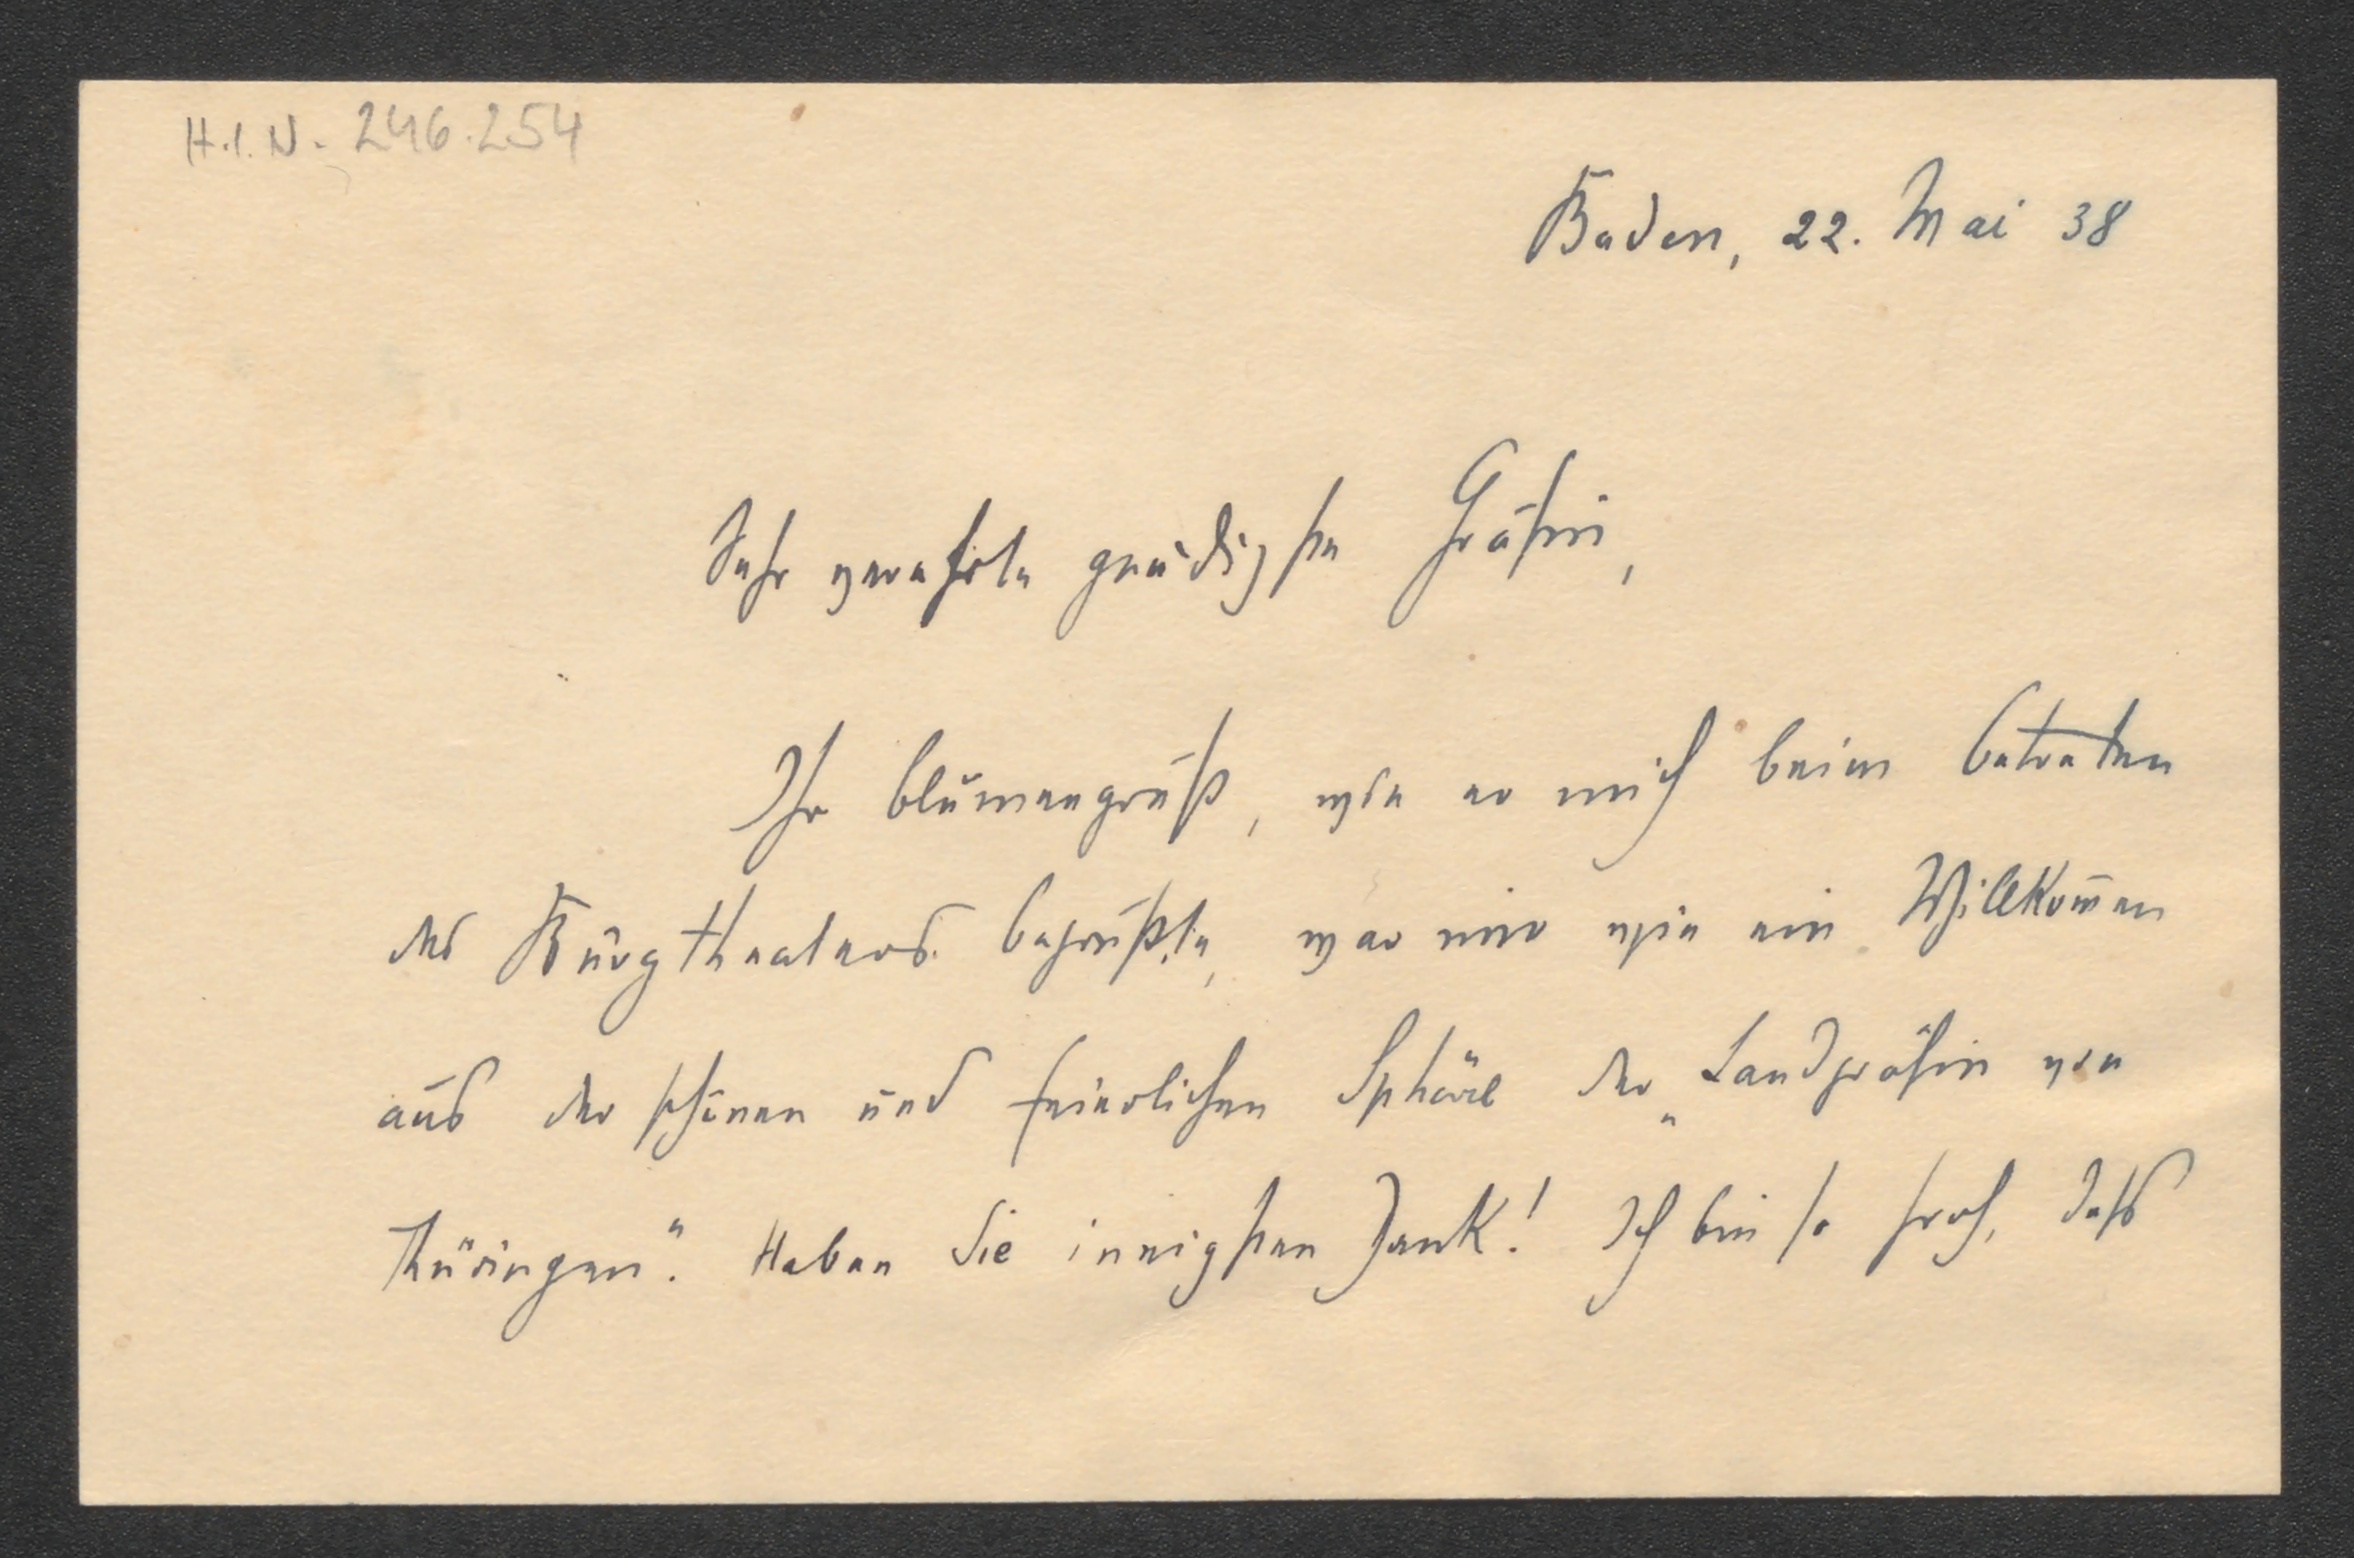 H.I.N. 246.254
Baden, 22. Mai 38
Sehr verehrte gnädigste Gräfin,
Ihr Blumengruß, wie er mich beim Betreten
des Burgtheaters begrüßte, war mir wie ein Willkom̅en
aus der schönen und feierlichen Sphäre der „Landgräfin von
Thüringen“. Haben Sie innigsten Dank! Ich bin so froh, daß